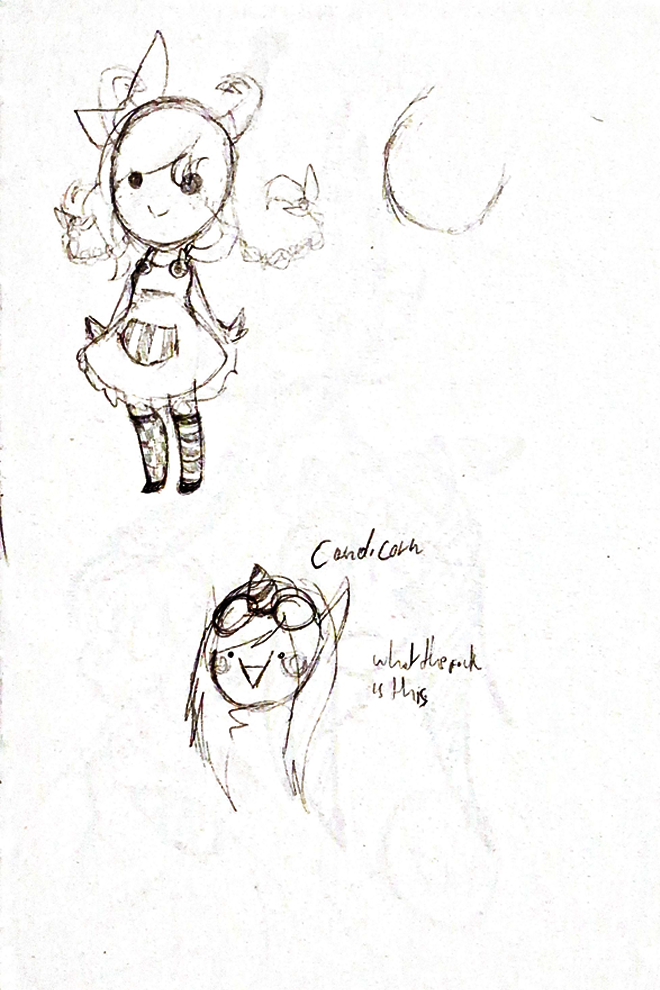 Candicorn
what the fuck
is this